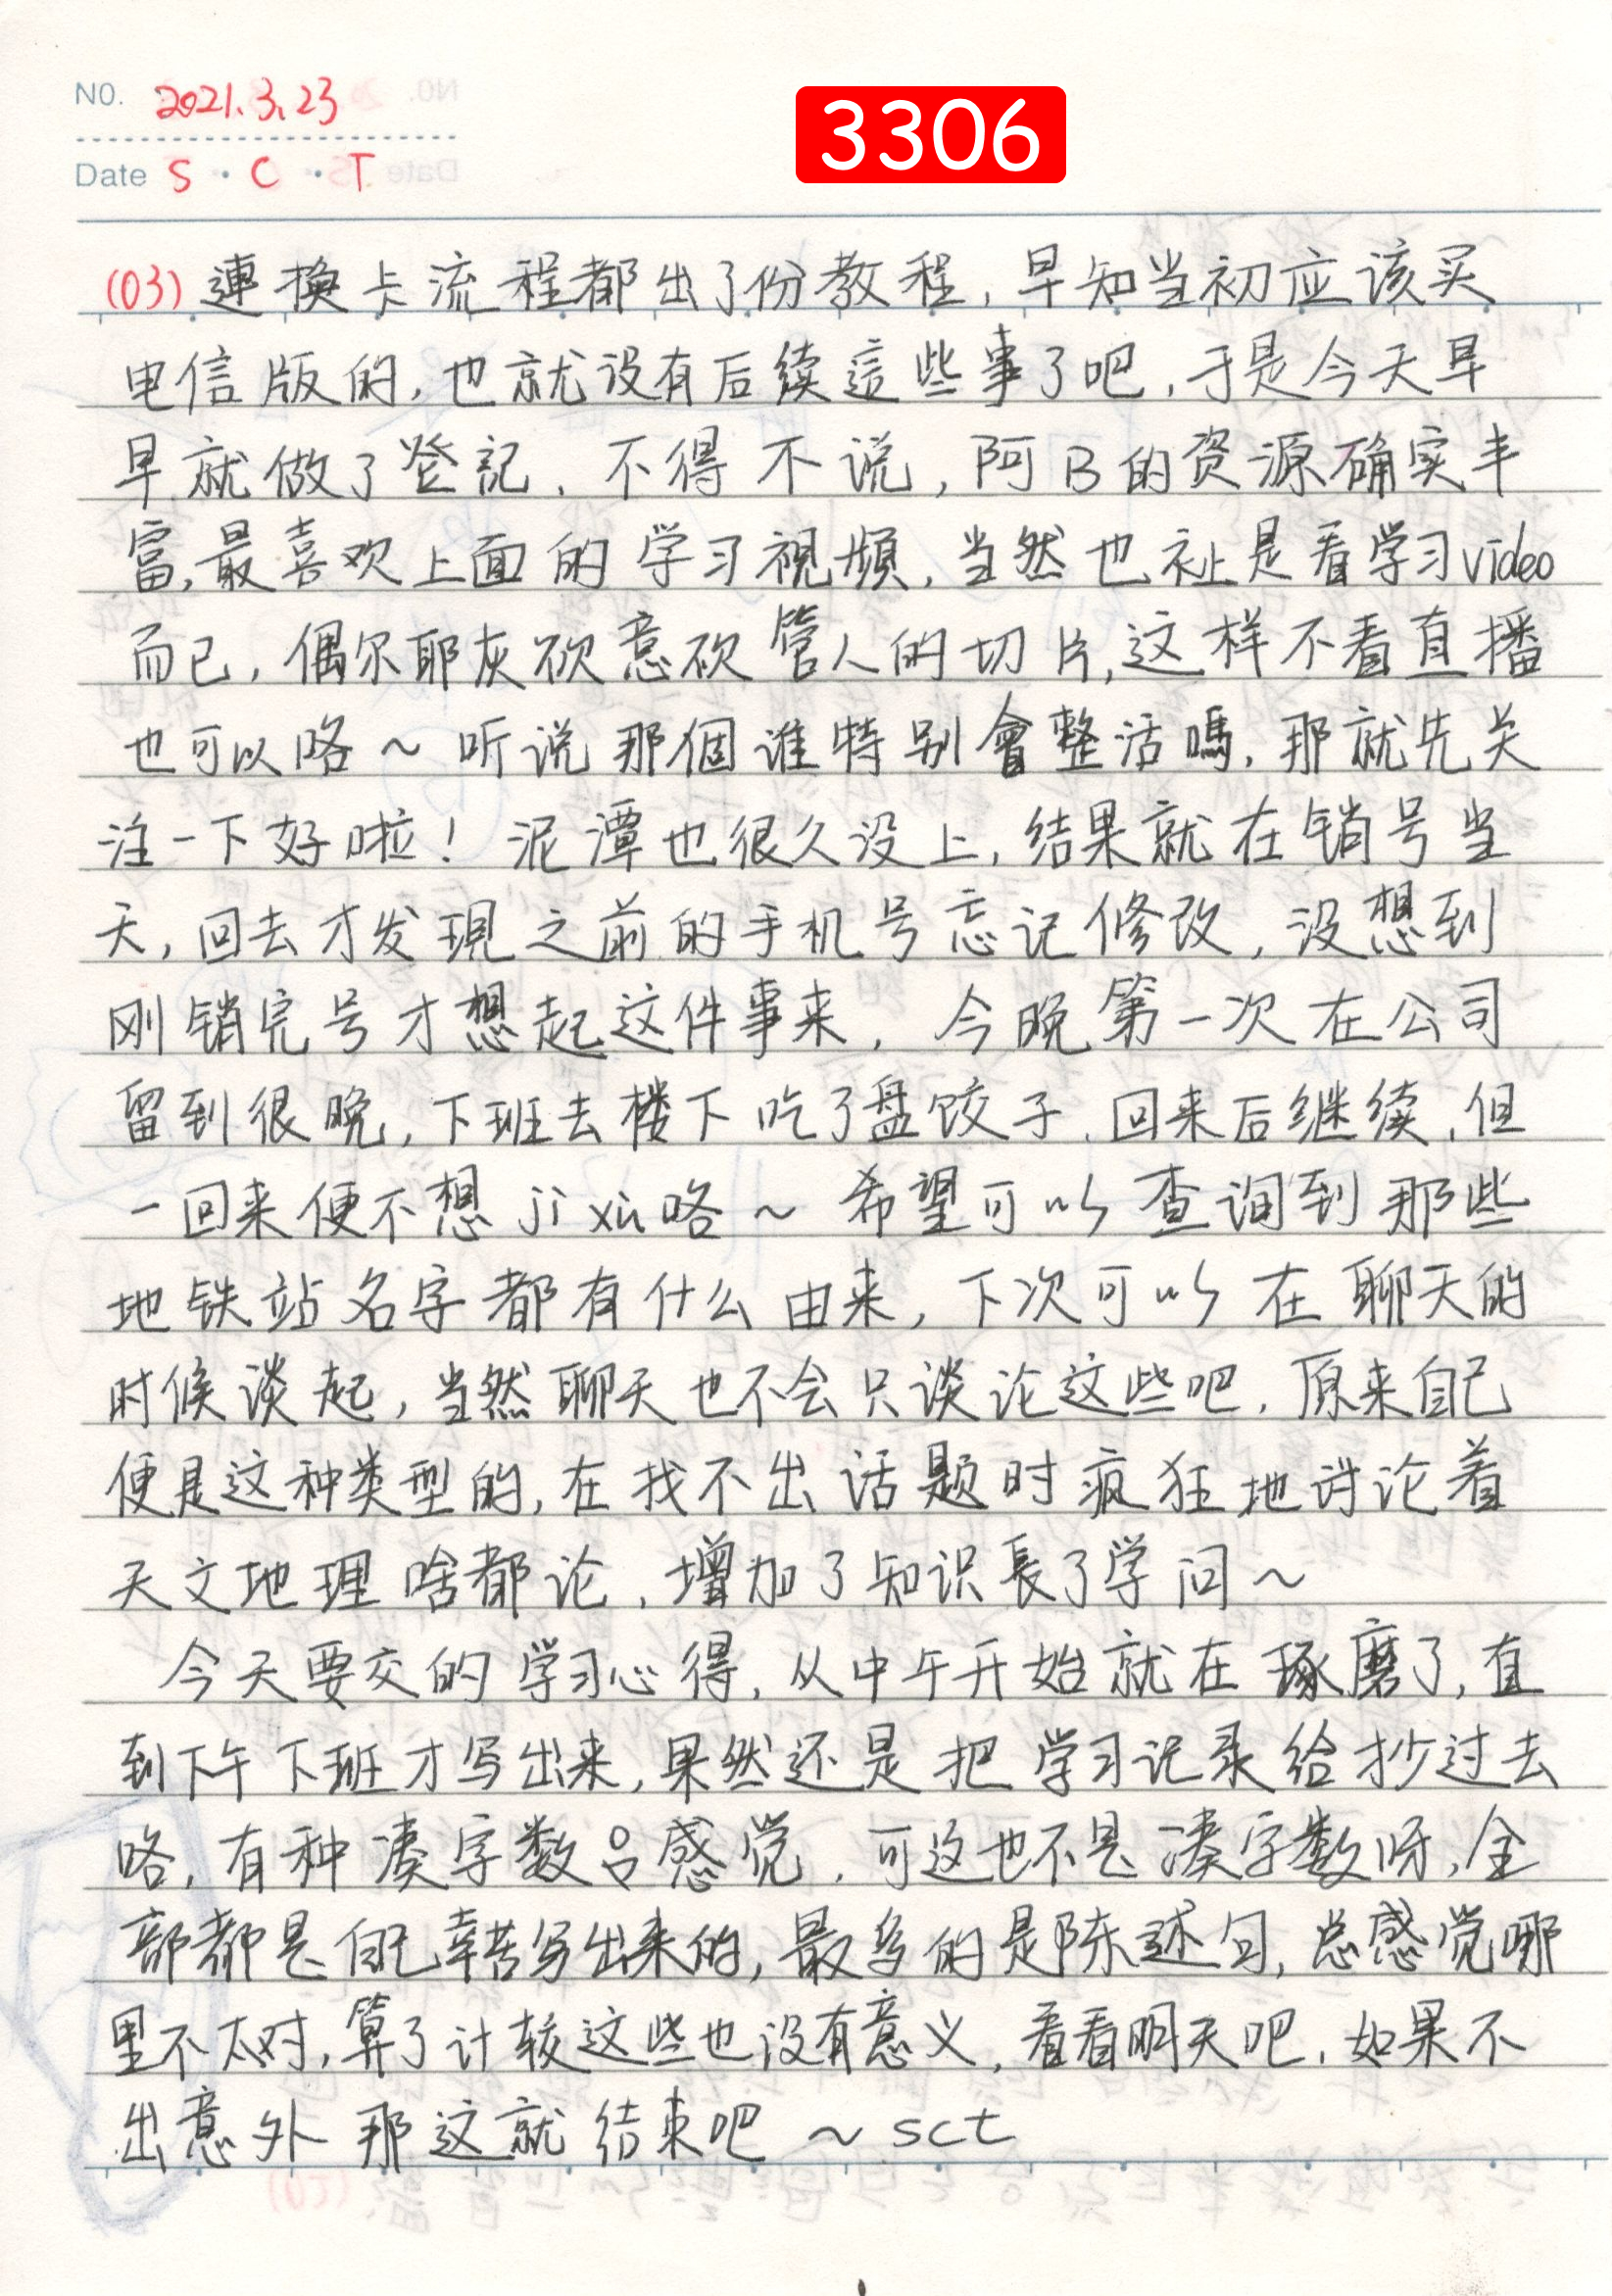 NO. 2021.3.23
3306
Date S · C · T
(03) 連換卡流程都出了份教程，早知当初应该买
电信版的，也就没有后续這些事了吧，于是今天早
早就做了登記．不得不说，阿B的资源确实丰
富，最喜欢上面的学习視頻，当然也祉是看学习video
而已，偶尔耶灰欣意欣管人的切片，这样不看直播
也可以咯～听说那個谁特别會整活嗎，那就先关
注一下好啦！泥潭也很久没上，结果就在销号当
天，回去才发現之前的手机号忘记修改，没想到
刚销完号才想起这件事来．今晚第一次在公司
留到很晚，下班去楼下吃了盘饺子．回来后继续，但
一回来便不想 ji xù 咯～希望可以查询到那些
地铁站名字都有什么由来，下次可以在聊天的
时候谈起，当然聊天也不会只谈论这些吧．原来自己
便是这种类型的，在找不出话题时疯狂地讨论着
天文地理啥都论，增加了知识長了学问～
今天要交的学习心得，从中午开始就在琢磨了，直
到下午下班才写出来，果然还是把学习记录给抄过去
咯，有种凑字数感觉．可这也不是凑字数呀，全
部都是自己辛苦写出来的，最多的是陈述句，总感觉哪
里不太对，算了计较这些也没有意义，看看明天吧．如果不
出意外那这就结束吧～sct